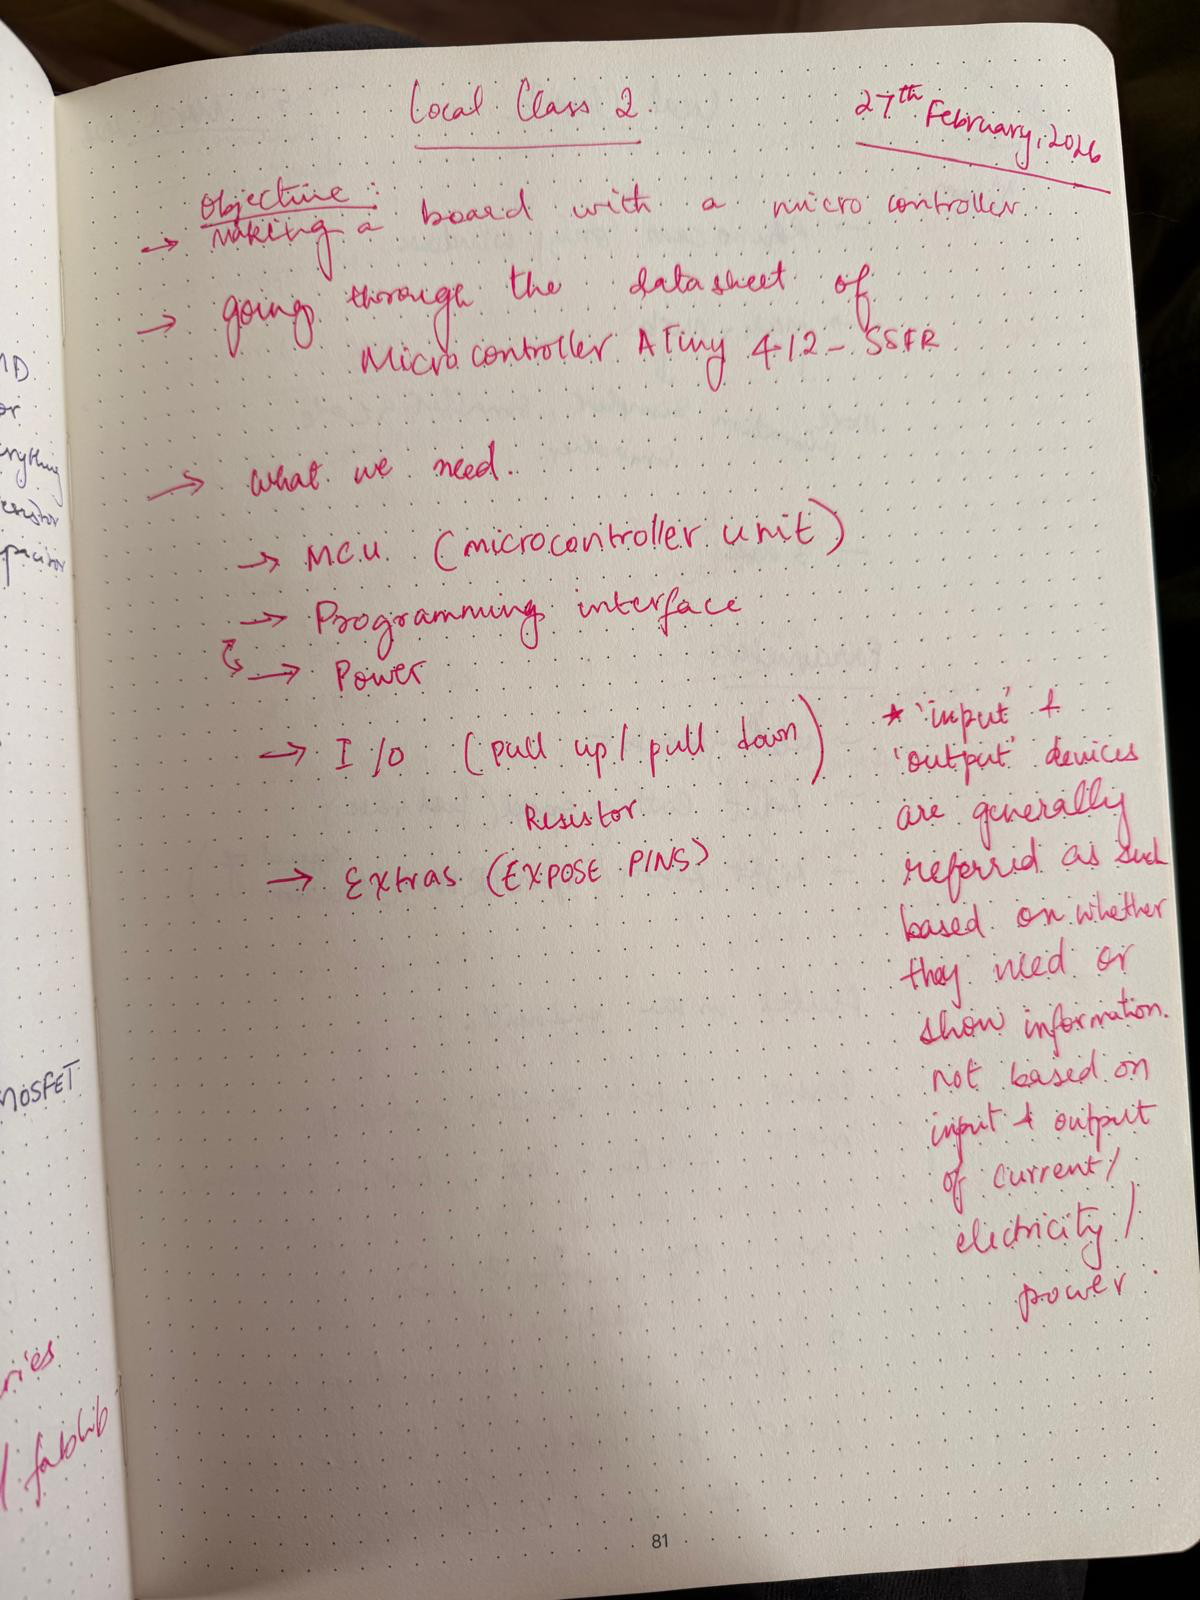 Local Class 2
27th February, 2026
Objective :
→ Making a board with a micro controller
→ going through the datasheet of
Microcontroller ATiny 412 - SSFR
→ what we need.
→ M.C.U. (microcontroller unit)
→ Programming interface
→ Power
→ I/O (pull up / pull down)
Resistor
→ Extras (EXPOSE PINS)
* 'input' +
'output' devices
are generally
referred as such
based on whether
they need or
show information.
not based on
input + output
of current /
electricity /
power.
81
MOSFET
fablib